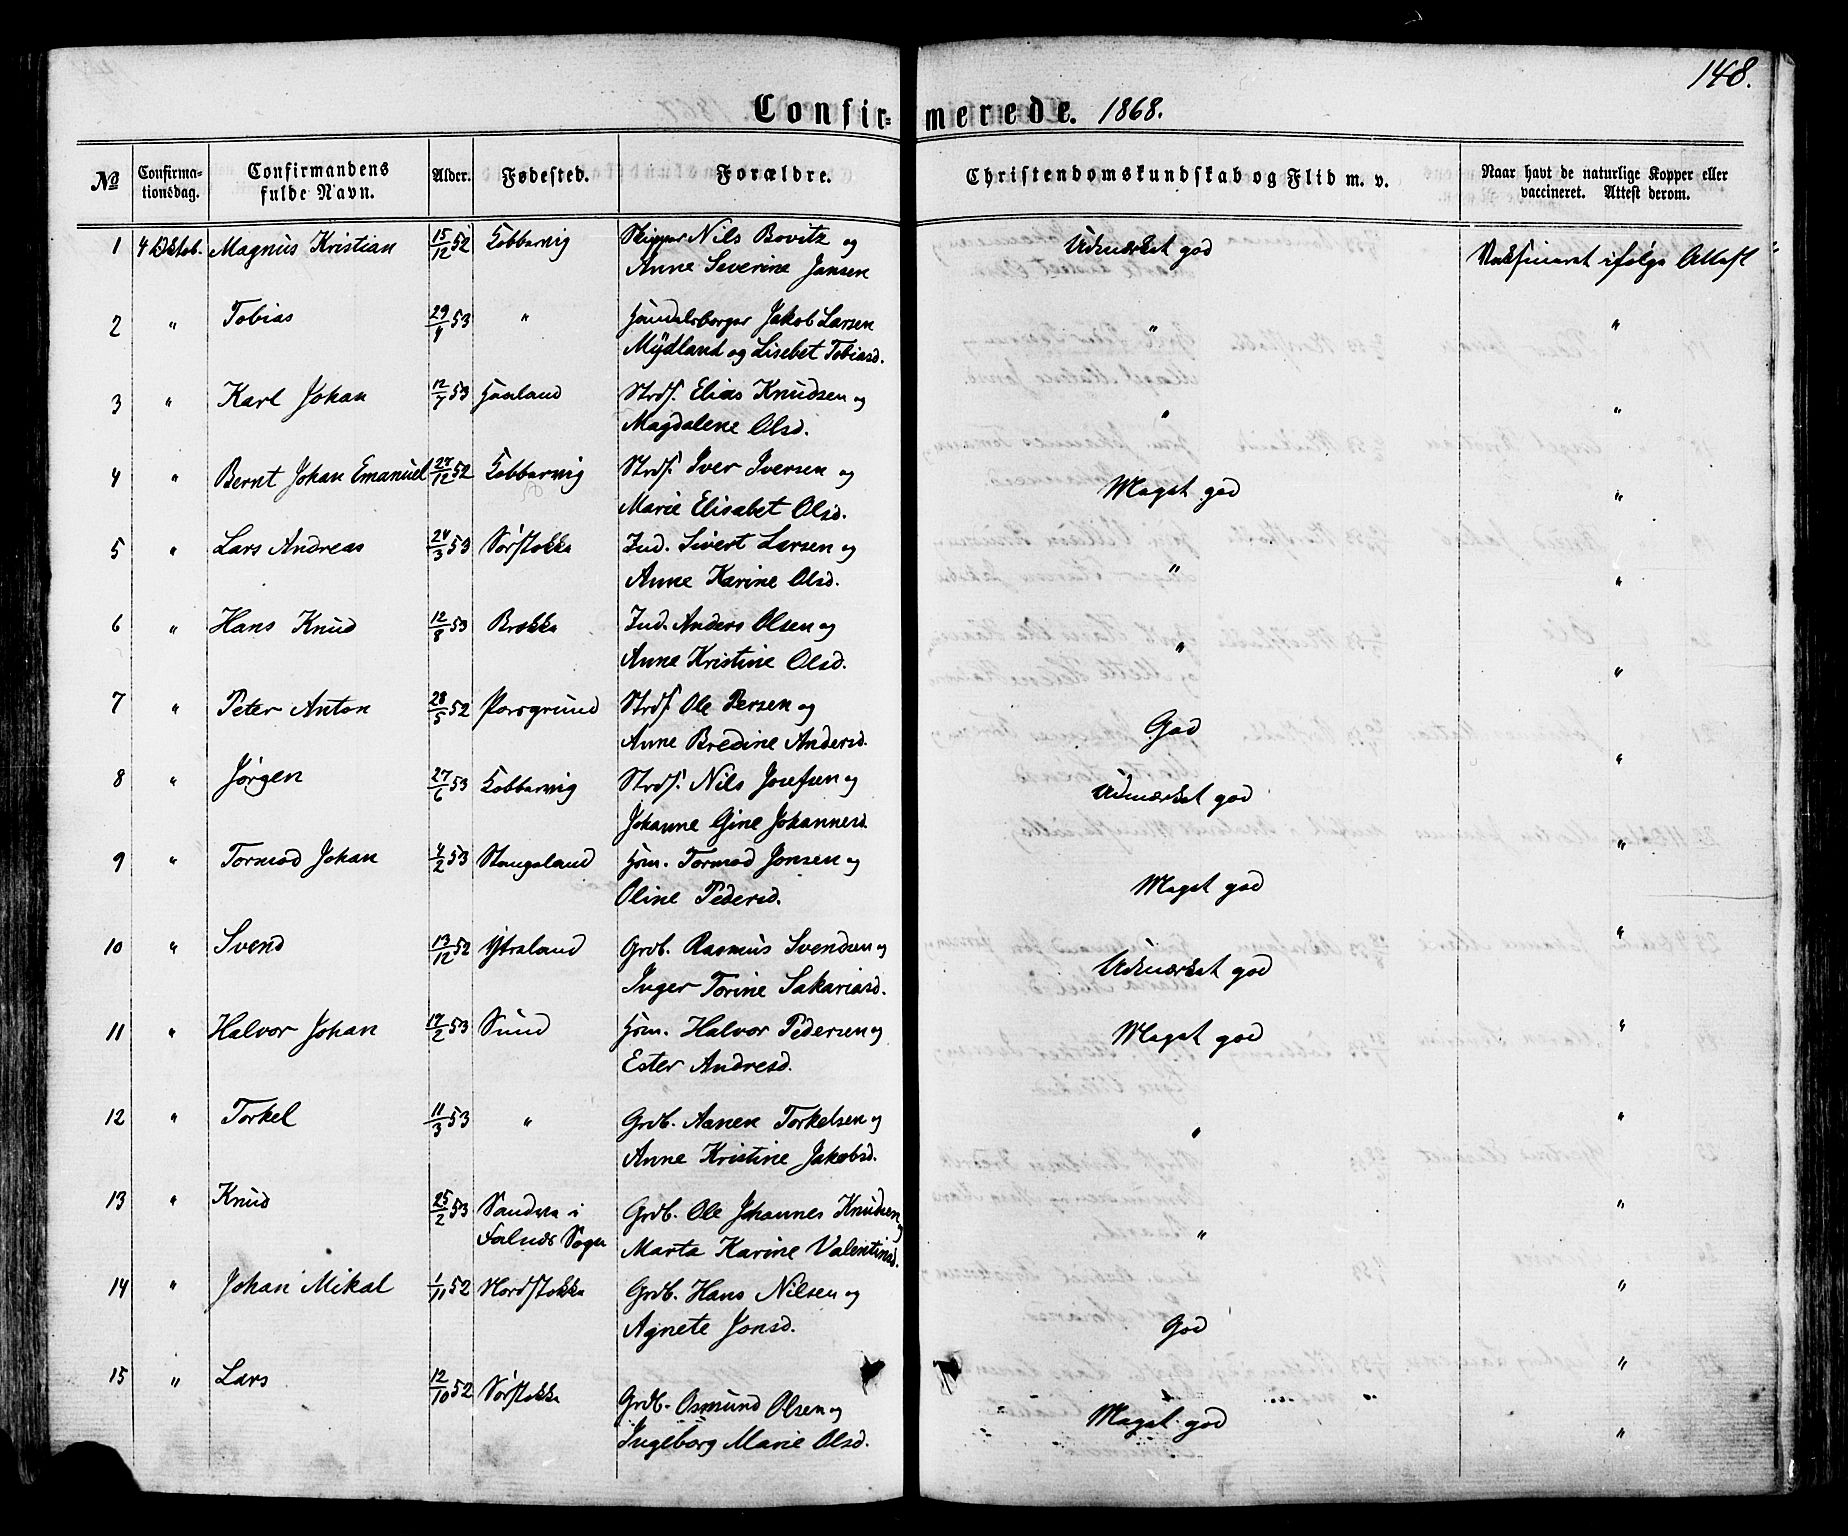 148.
Confirmerede. 1868.
No Confirmationsdag. Confirmandens fulde Navn. Alder. Fødested. Forældre. Christendomskundskab og Flid m. v. Naar havt de naturlige Kopper eller vaccineret. Attest derom.
1 4 Oktob. Magnus Kristian 15/12 52 Kobbervig Skipper Nils Bovitz og Udmærket god Vaksineret ifølge Attest
Anne Severine Jansen
2 " Tobias 29/4 53 " Handelsborger Jakob Larsen " "
Mydland og Lisebet Tobiasd.
3 " Karl Johan 12/7 53 Haaland Strds. Elias Knudsen og " "
Magdalene Olsd.
4 " Bernt Johan Emanuel 27/12 52 Kobbervig Strds. Iver Iversen og Meget god "
Marie Elisabet Olsd.
5 " Lars Andreas 24/3 53 Sørstokke Ind. Sivert Larsen og " "
Anne Karine Olsd.
6 " Hans Knud 12/8 53 Brekke Ind. Anders Olsen og " "
Anne Kristine Olsd.
7 " Peter Anton 28/5 52 Porsgrund Strds. Ole Persen og God "
Anne Bredine Andersd.
8 " Jørgen 27/6 53 Kobbervig Strds. Nils Josefsen og Udmærket god "
Johanne Gine Johannesd.
9 " Tormod Johan 4/2 53 Stangeland Hsm. Tormod Jonsen og Meget god "
Oline Pedersd.
10 " Svend 13/12 52 Ytreland Grdb. Rasmus Svendsen og Udmærket god "
Inger Torine Sakariasd.
11 " Halvor Johan 17/2 53 Sund Hsm. Halvor Pedersen og Meget god "
Ester Andresd.
12 " Torkel 11/3 53 " Grdb. Aanen Torkelsen og " "
Anne Kristine Jakobsd.
13 " Knud 25/2 53 Sandve i Grdb. Ole Johannes Knudsen og " "
Falnes Sogn Marta Karine Valentinsd.
14 " Johan Mikal 1/11 52 Nordstokke Grdb. Hans Nilsen og God "
Agnete Jonsd.
15 " Lars 12/10 52 Sørstokke Grdb. Osmund Olsen og Meget god "
Ingeborg Marie Olsd.